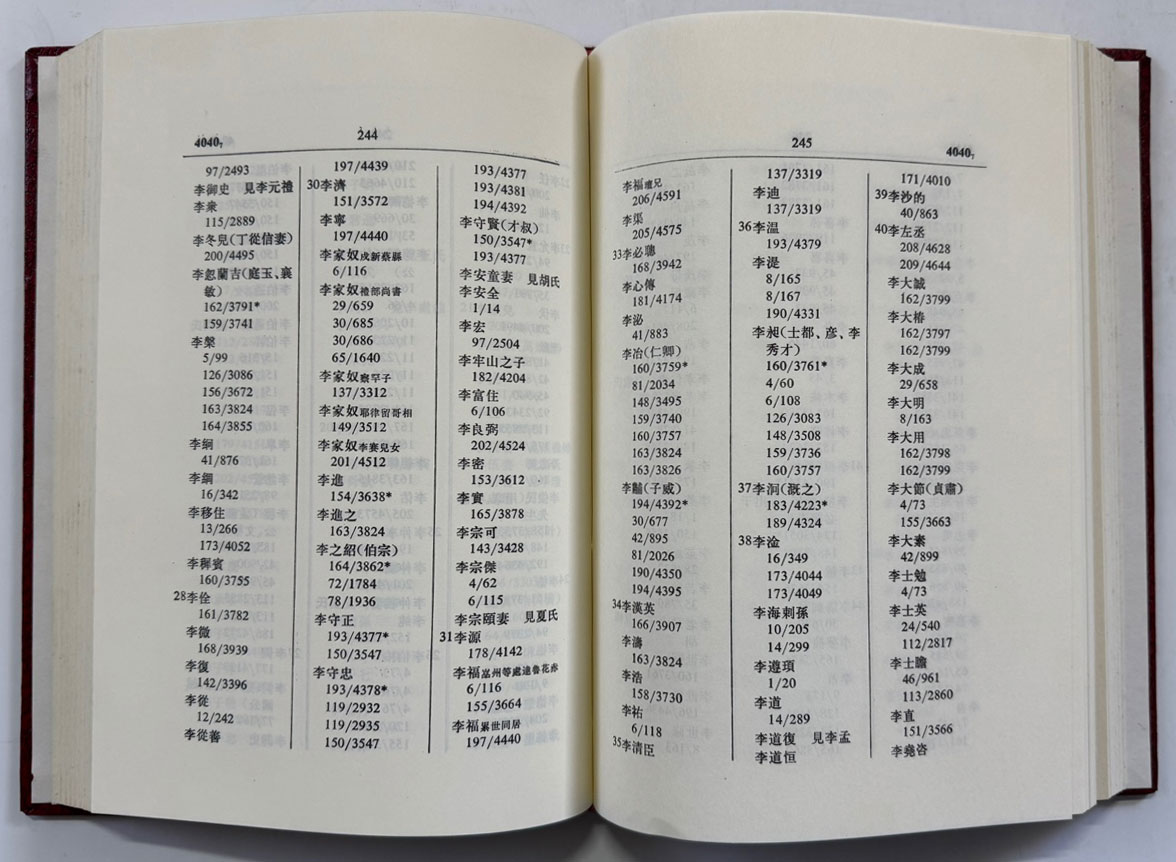 4040₇
244
97/2493
李御史　見李元禮
李衆
115/2889
李冬兒(丁從信妻)
200/4495
李忽蘭吉(庭玉、襄
敏)
162/3791*
159/3741
李槃
5/99
126/3086
156/3672
163/3824
164/3855
李絅
41/876
李綱
16/342
李移住
13/266
173/4052
李御賓
160/3755
28李佺
161/3782
李微
168/3939
李復
142/3396
李從
12/242
李從善
197/4439
30李濟
151/3572
李寧
197/4440
李家奴戍新蔡縣
6/116
李家奴禮部尚書
29/659
30/685
30/686
65/1640
李家奴察罕子
137/3312
李家奴耶律留哥相
149/3512
李家奴李賽兒女
201/4512
李進
154/3638*
李進之
163/3824
李之紹(伯宗)
164/3862*
72/1784
78/1936
李守正
193/4377*
150/3547
李守忠
193/4378*
119/2932
119/2935
150/3547
193/4377
193/4381
194/4392
李守賢(才叔)
150/3547*
193/4377
李安童妻　見胡氏
李安全
1/14
李宏
97/2504
李牢山之子
182/4204
李富住
6/106
李良弼
202/4524
李密
153/3612
李實
165/3878
李宗可
143/3428
李宗傑
4/62
6/115
李宗頤妻　見夏氏
31李源
178/4142
李福嵩州等處達魯花赤
6/116
155/3664
李福累世同居
197/4440
245
4040₇
李福壇兄
206/4591
李渠
205/4575
33李必聰
168/3942
李心傳
181/4174
李泌
41/883
李冶(仁卿)
160/3759*
81/2034
148/3495
159/3740
160/3757
163/3824
163/3826
李黼(子威)
194/4392*
30/677
42/895
81/2026
190/4350
194/4395
34李漢英
166/3907
李濤
163/3824
李浩
158/3730
李祐
6/118
35李清臣
137/3319
李迪
137/3319
36李温
193/4379
李湜
8/165
8/167
190/4331
李昶(士都、彦、李
秀才)
160/3761*
4/60
6/108
126/3083
148/3508
159/3736
160/3757
37李泂(溉之)
183/4223*
189/4324
38李淦
16/349
173/4044
173/4049
李海剌孫
10/205
14/299
李遵頊
1/20
李道
14/289
李道復　見李孟
李道恒
171/4010
39李沙的
40/863
40李左丞
208/4628
209/4644
李大誠
162/3799
李大椿
162/3797
162/3799
李大成
29/658
李大明
8/163
李大用
162/3798
162/3799
李大節(貞肅)
4/73
155/3663
李大素
42/899
李士勉
4/73
李士英
24/540
112/2817
李士瞻
46/961
113/2860
李直
151/3566
李堯咨